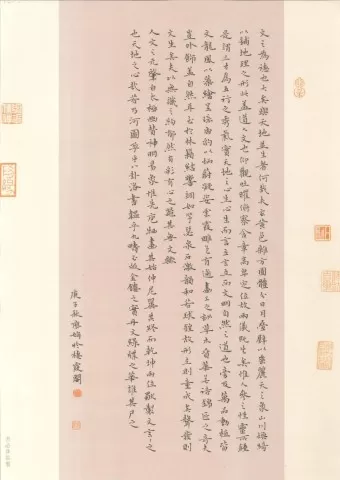 文之為德也大矣與天地並生者何哉夫玄黃色雜方圓體分日月疊璧以垂麗天之象山川煥綺
以鋪地理之形此蓋道之文也仰觀吐曜俯察含章高卑定位故兩儀既生矣惟人參之性靈所鍾
是謂三才為五行之秀氣實天地之心生心生而言立言立而文明自然之道也旁及萬品動植皆
文龍鳳以藻繪呈瑞虎豹以炳蔚凝姿雲霞雕色有逾畫工之妙草木賁華無待錦匠之奇夫
豈外飾蓋自然耳至於林籟結響調如竽瑟泉石激韻和若球鍠故形立則章成矣聲發則
文生矣夫以無識之物鬱然有彩有心之器其無文歟
人文之元肇自太極幽贊神明易象惟先庖犧畫其始仲尼翼其終而乾坤兩位獨制文言言之文
也天地之心哉若乃河圖孕乎八卦洛書韞乎九疇玉版金鏤之實丹文綠牒之華誰其尸之
庚子秋娟於棲霞閣